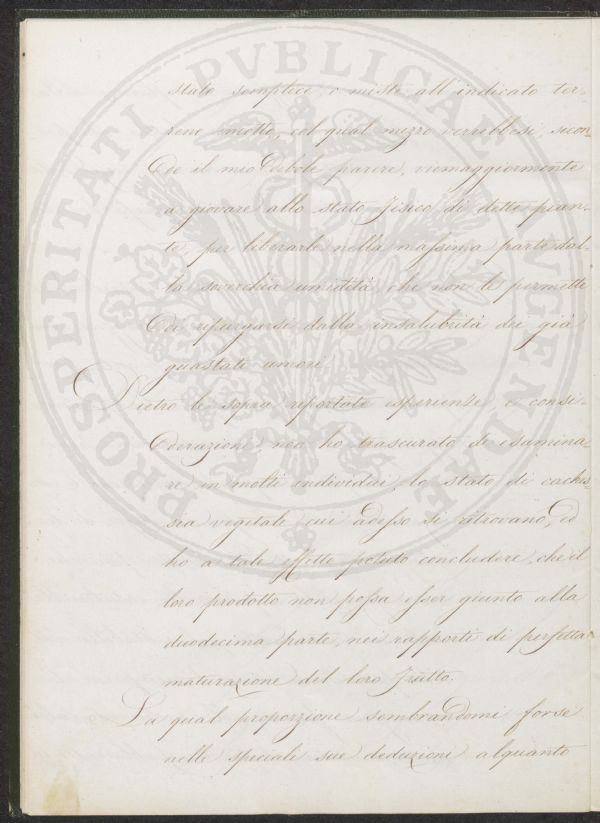 PROSPERITATI PVBLICAE AVGENDAE
stato semplice, o misti all'indicato ter-
reno smotto, col qual mezzo verrebbesi, secon-
do il mio debole parere, viemaggiormente
a giovare allo stato fisico di dette pian-
te, per liberarle nella massima parte dal-
la soverchia umidità, che non le permette
di repurgarsi dalla insalubrità dei già
guastati umori.
Dietro le sopra riportate esperienze, e consi-
derazioni, non ho trascurato di esamina-
re in molti individui, lo stato di caches-
sia vegetale cui adesso si ritrovano, ed
ho a tale effetto potuto concludere, che il
loro prodotto non possa esser giunto alla
duodecima parte, nei rapporti di perfetta
maturazione del loro frutto.
La qual proporzione sembrandomi forse
nelle speciali sue deduzioni alquanto